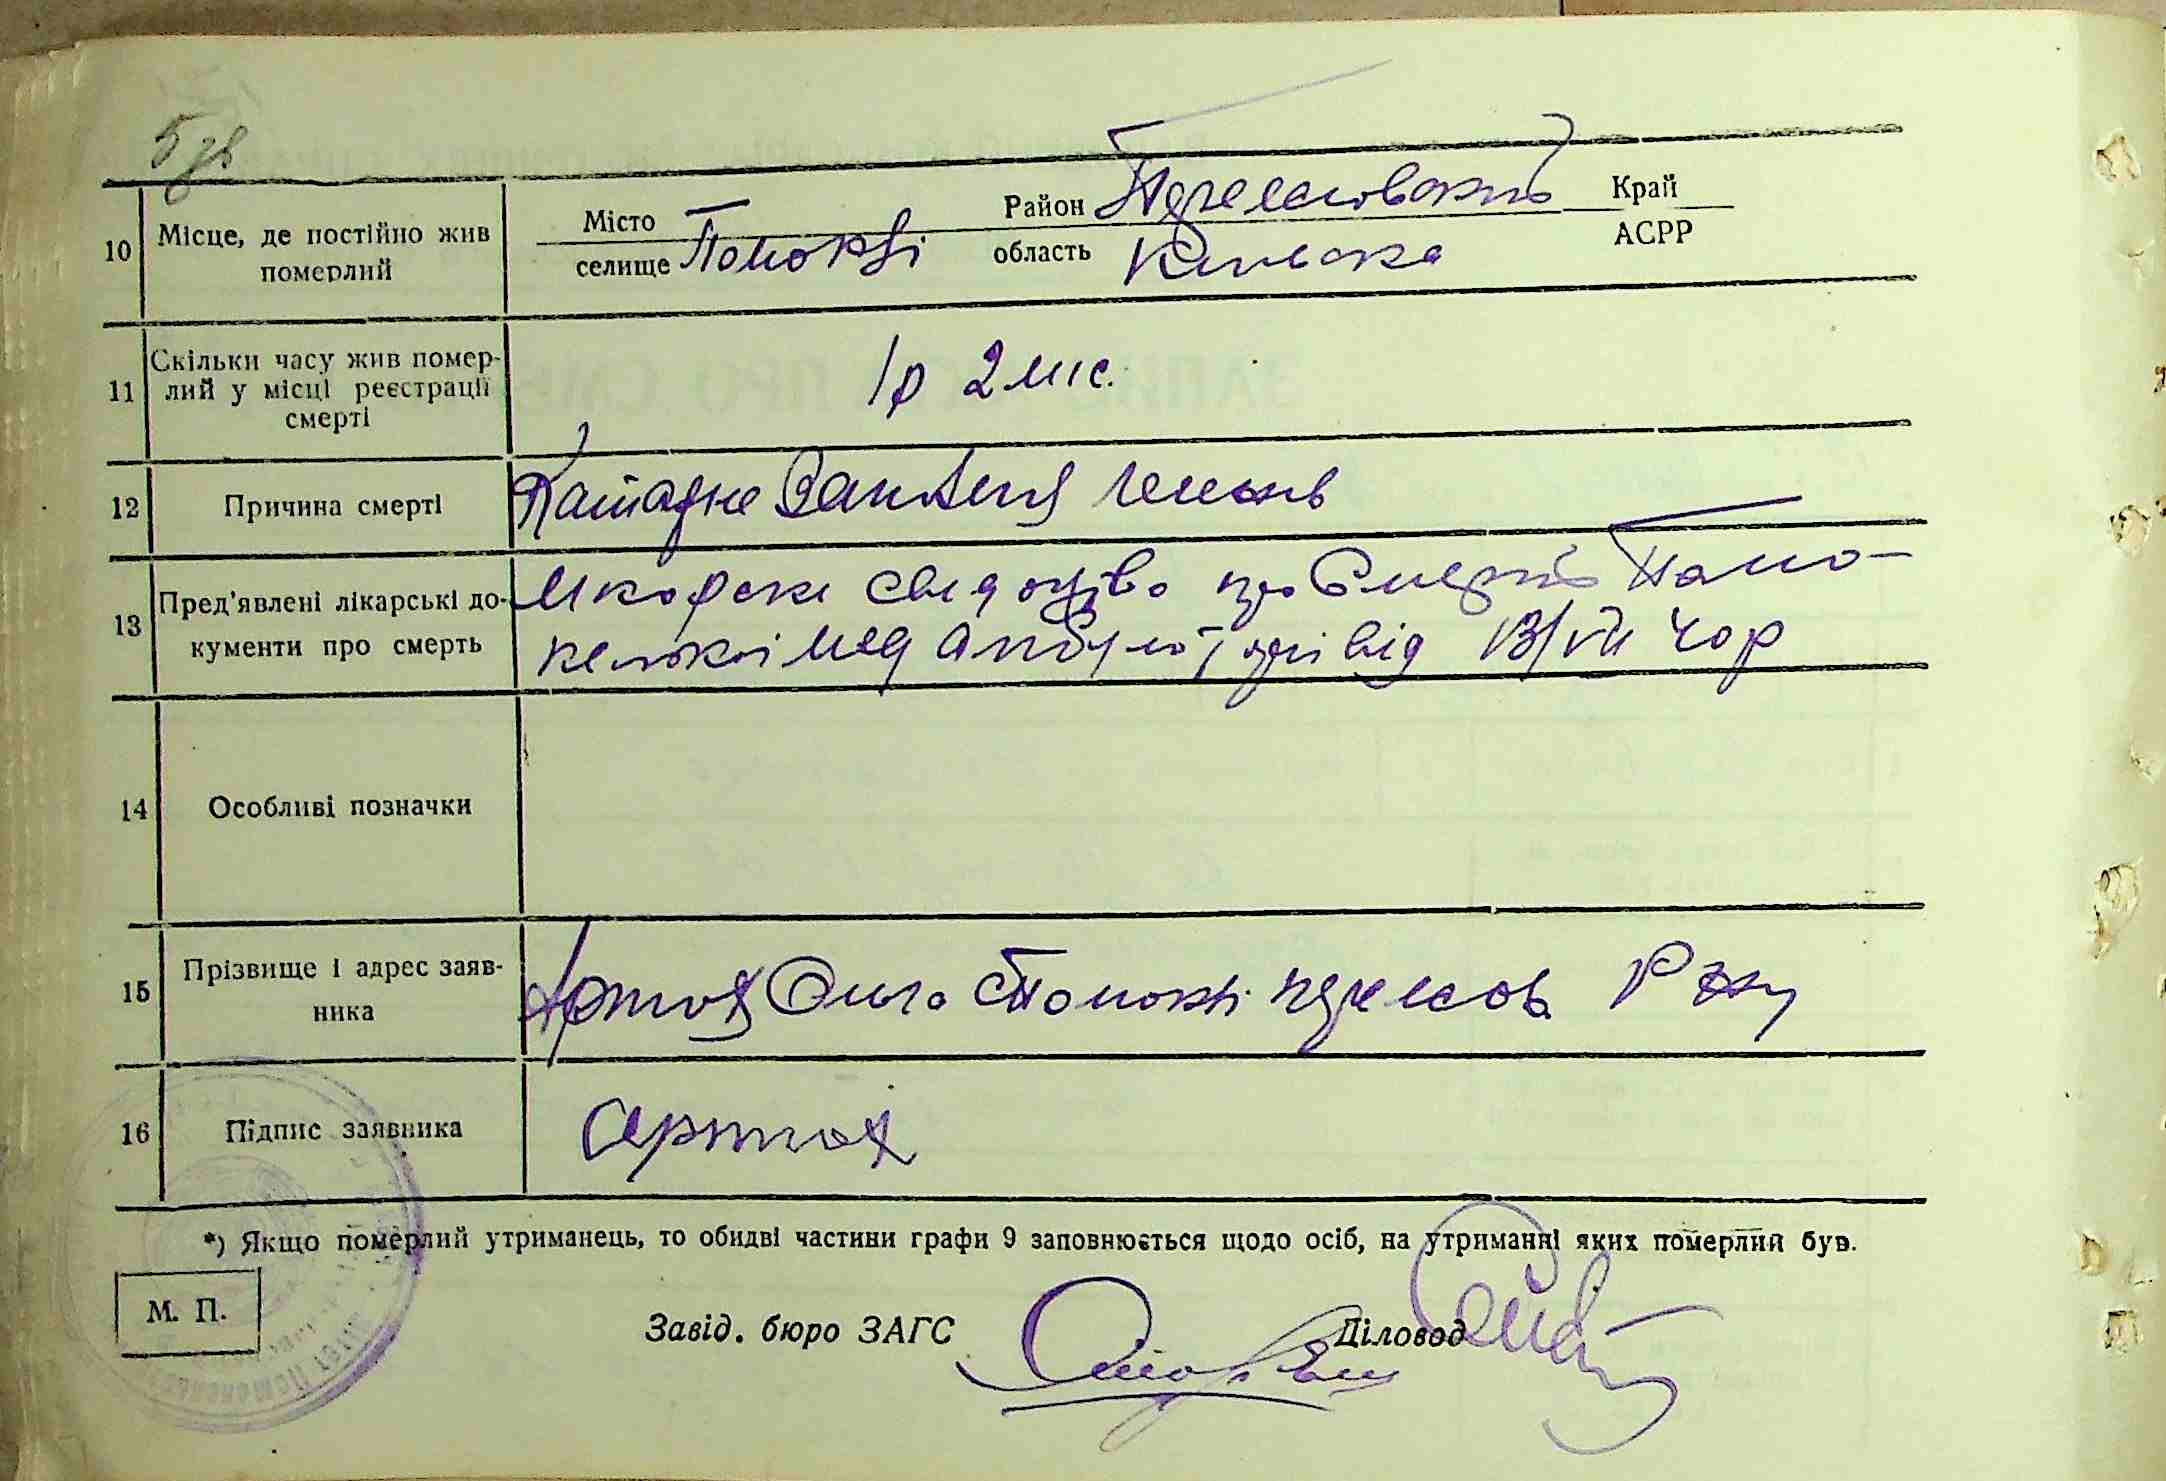 5 зв
10 Місце, де постійно жив померлий
Місто селище Помоклі Район Переяславський Край
область Київська АСРР
11 Скільки часу жив померлий у місці реєстрації смерті
1р 2 міс.
12 Причина смерті
Катарне запалення легень
13 Пред'явлені лікарські документи про смерть
Лікарське свідоцтво про смерть Помо-
кельської мед амбулаторії від 13/VII 40р
14 Особливі позначки
15 Прізвище і адрес заявника
Ольга с Помоклі Переяслов. р-ну
16 Підпис заявника
*) Якщо померлий утриманець, то обидві частини графи 9 заповнюється щодо осіб, на утриманні яких померлий був.
М. П.
Завід. бюро ЗАГС Діловод